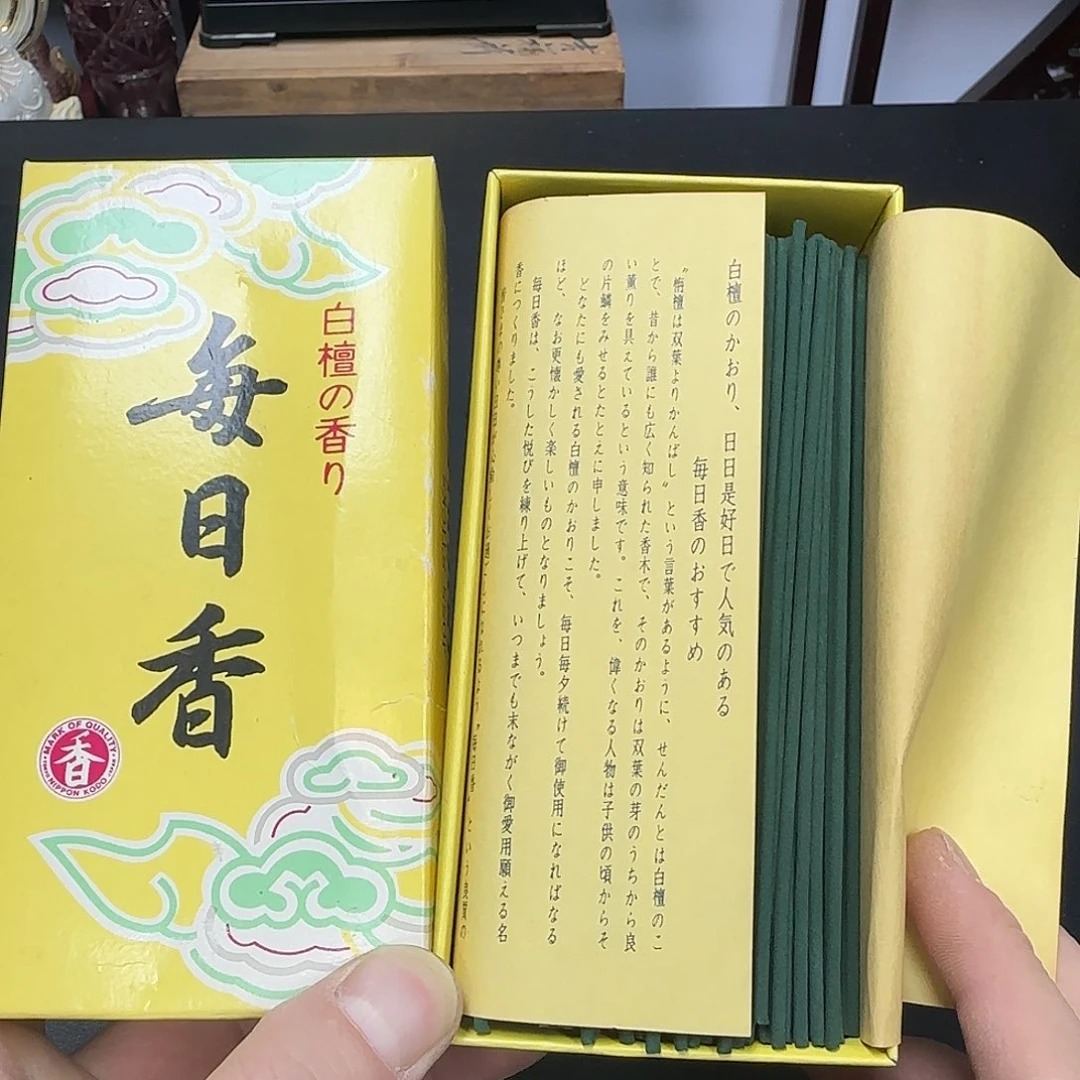 白檀の香り
毎日香
MARK OF QUALITY
香
NIPPON KODO
白檀のかおり、日日是好日で人気のある
毎日香のおすすめ
〝栴檀は双葉よりかんばし〟という言葉があるように、せんだんとは白檀のこ
とで、昔から誰にも広く知られた香木で、そのかおりは双葉の芽のうちから良
い薫りを具えているという意味です。これを、偉くなる人物は子供の頃からそ
の片鱗をみせるとたとえに申しました。
どなたにも愛される白檀のかおりこそ、毎日毎夕続けて御使用になればなる
ほど、なお更懐かしく楽しいものとなりましょう。
毎日香は、こうした悦びを練り上げて、いつまでも末ながく御愛用願える名
香につくりました。